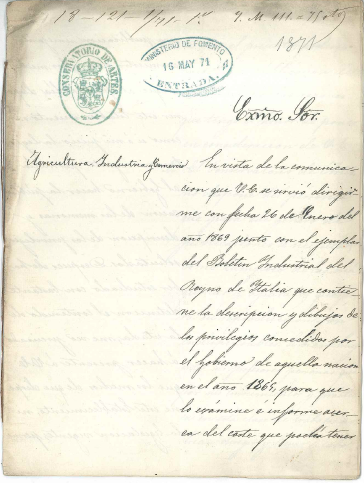 18-121-1/71-1º
1871
CONSERVATORIO DE ARTES
MINISTERIO DE FOMENTO
16 MAY 71
ENTRADA
Exmo. Sor.
Agricultura Industria y Comercio
En vista de la comunica-
cion que V.E. se sirvió dirigir
me con fecha 26 de Enero del
año 1869 junto con el ejemplar
del Boletin Industrial del
Reyno de Italia que contie-
ne la descripcion y dibujos de
los privilegios concedidos por
el Gobierno de aquella nacion
en el año 1865, para que
lo exámine é informe acer-
ca del coste que podria tener